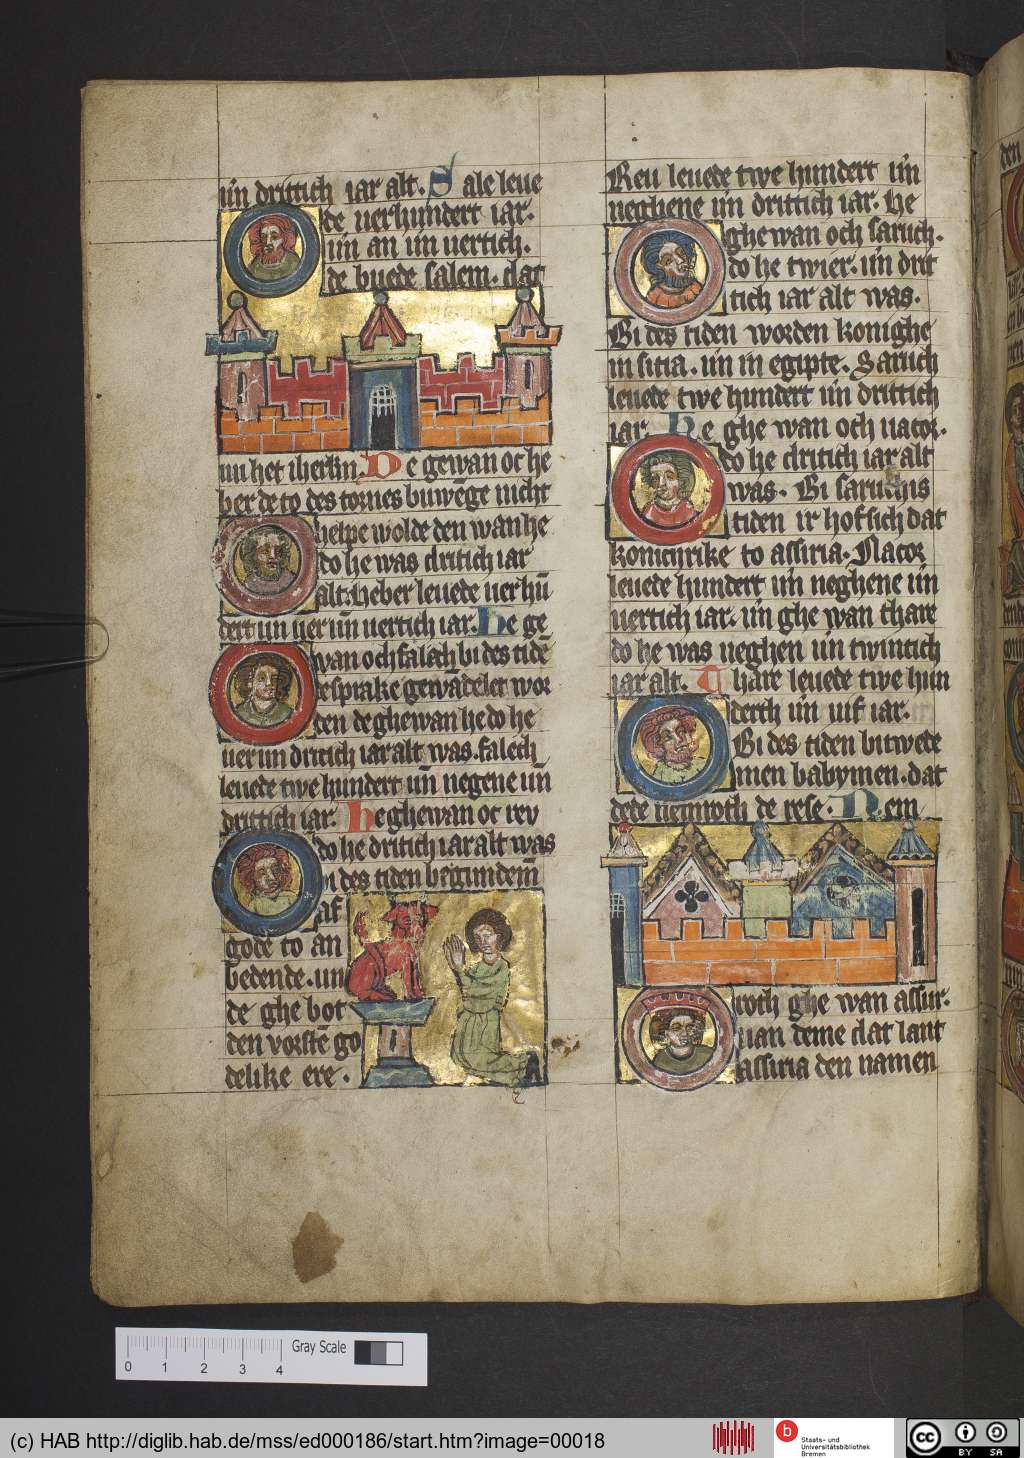 un drittich iar alt. Sale leue
de uerhundert iar.
un an un uertich.
de buede salem. dat
nu het iherlm. De gewan oc he
ber de to des tornes buwēge nicht
helpe wolde den wan he
do he was dritich iar
alt. heber leuede uer hū
dert un uer un̄ uertich iar. he ge
wan och falach bi des tidē
de sprake gewādelet wor
den de ghewan he do he
uer un dritich iar alt was. falech
leuede twe hundert un̄ negene un̄
drittich iar. he ghewan oc rev
do he dritich iar alt was
bi des tiden begundem̄
af
gode to an
bedende. un
de ghe bot
den vorstē go
delike ere.
Reu leuede twe hundert un
neghene un drittich iar. he
ghewan och saruch.
do he twier. un drit
tich iar alt was.
Bi des tiden worden konighe
in sitia. un in egipte. Saruch
leuede twe hundert un drittich
iar. he ghe wan och nacor.
do he dritich iar alt
was. Bi saruchis
tiden ir hof sich dat
konichrike to assiria. Nacor
leuede hundert un neghene un
uertich iar. un ghe wan thare
do he was neghen un twintich
iar alt. Thare leuede twe hun
derth un uif iar.
Bi des tiden bitwede
men babymen. dat
dede nemroth de rese. Nem
roth ghe wan assur.
uan deme dat lant
assiria den namen
den
Gray Scale
0 1 2 3 4
(c) HAB http://diglib.hab.de/mss/ed000186/start.htm?image=00018
b
Staats- und
Universitätsbibliothek
Bremen
cc
BY SA